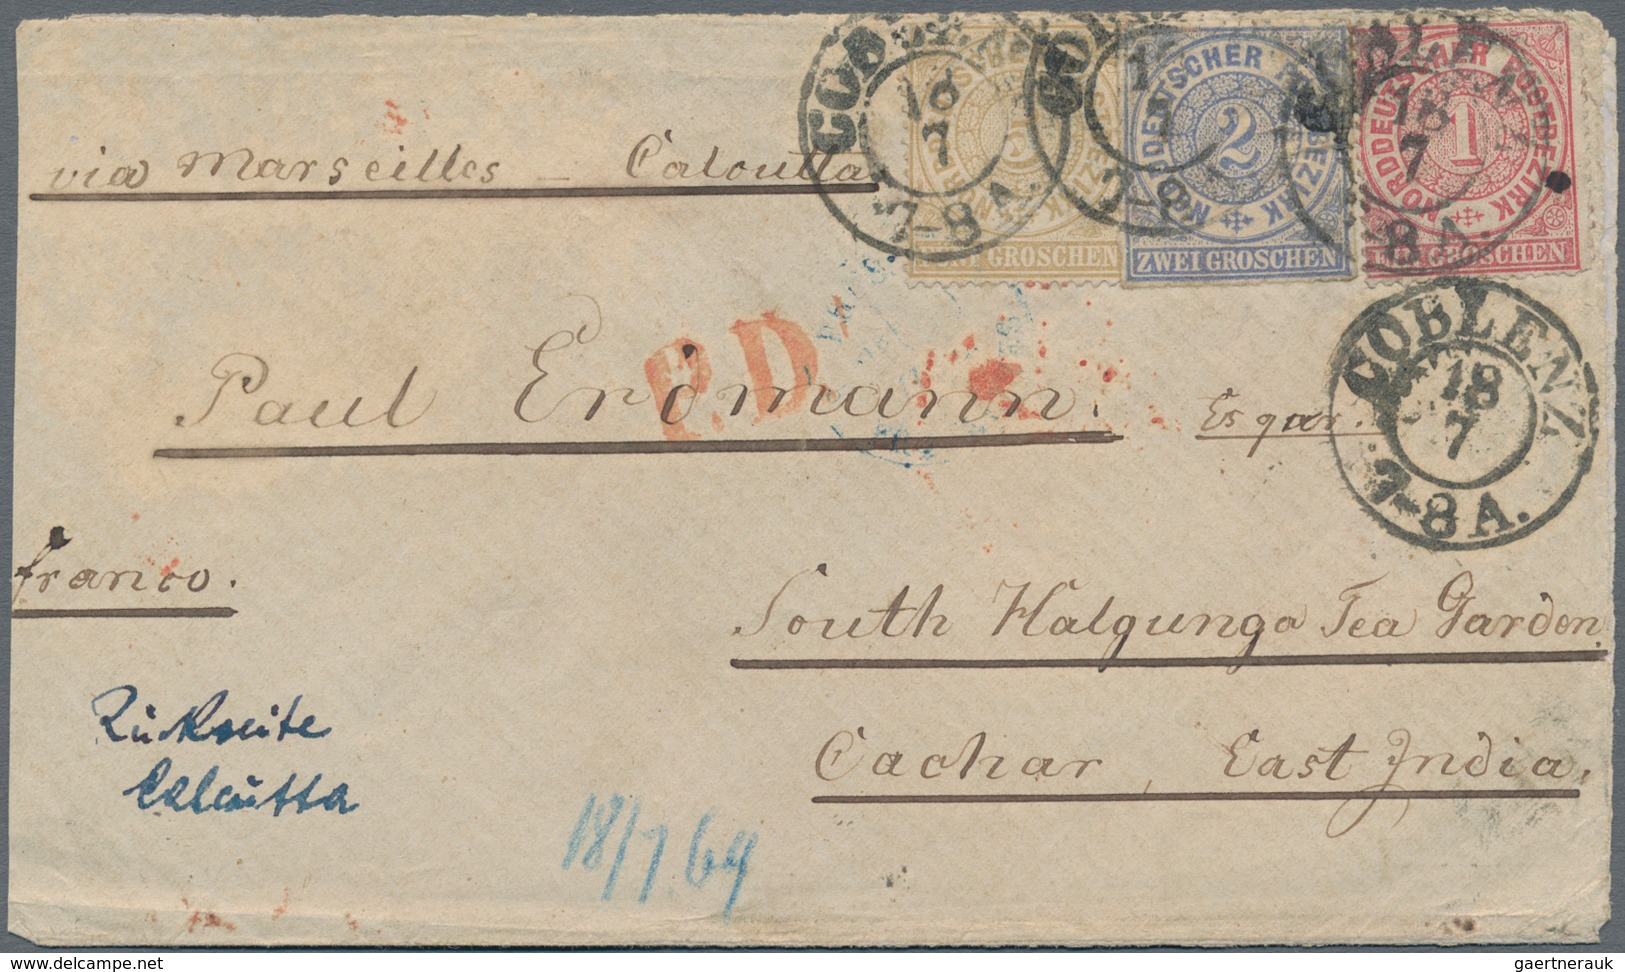 COBLENZ
18
7
7-8 A.
FÜNF GROSCHEN
NORDDEUTSCHER POSTBEZIRK
2
ZWEI GROSCHEN
COBLENZ
18
7
8 A.
NORDDEUTSCHER POSTBEZIRK
1
EIN GROSCHEN
via Marseilles – Calcutta
COBLENZ
18
7
7-8 A.
P.D.
Paul Erdmann. Esqur.
franco.
South Halgunga Tea Garden
Cachar, East India.
Rückseite
Calcutta
18/7 69
gaertnerauk